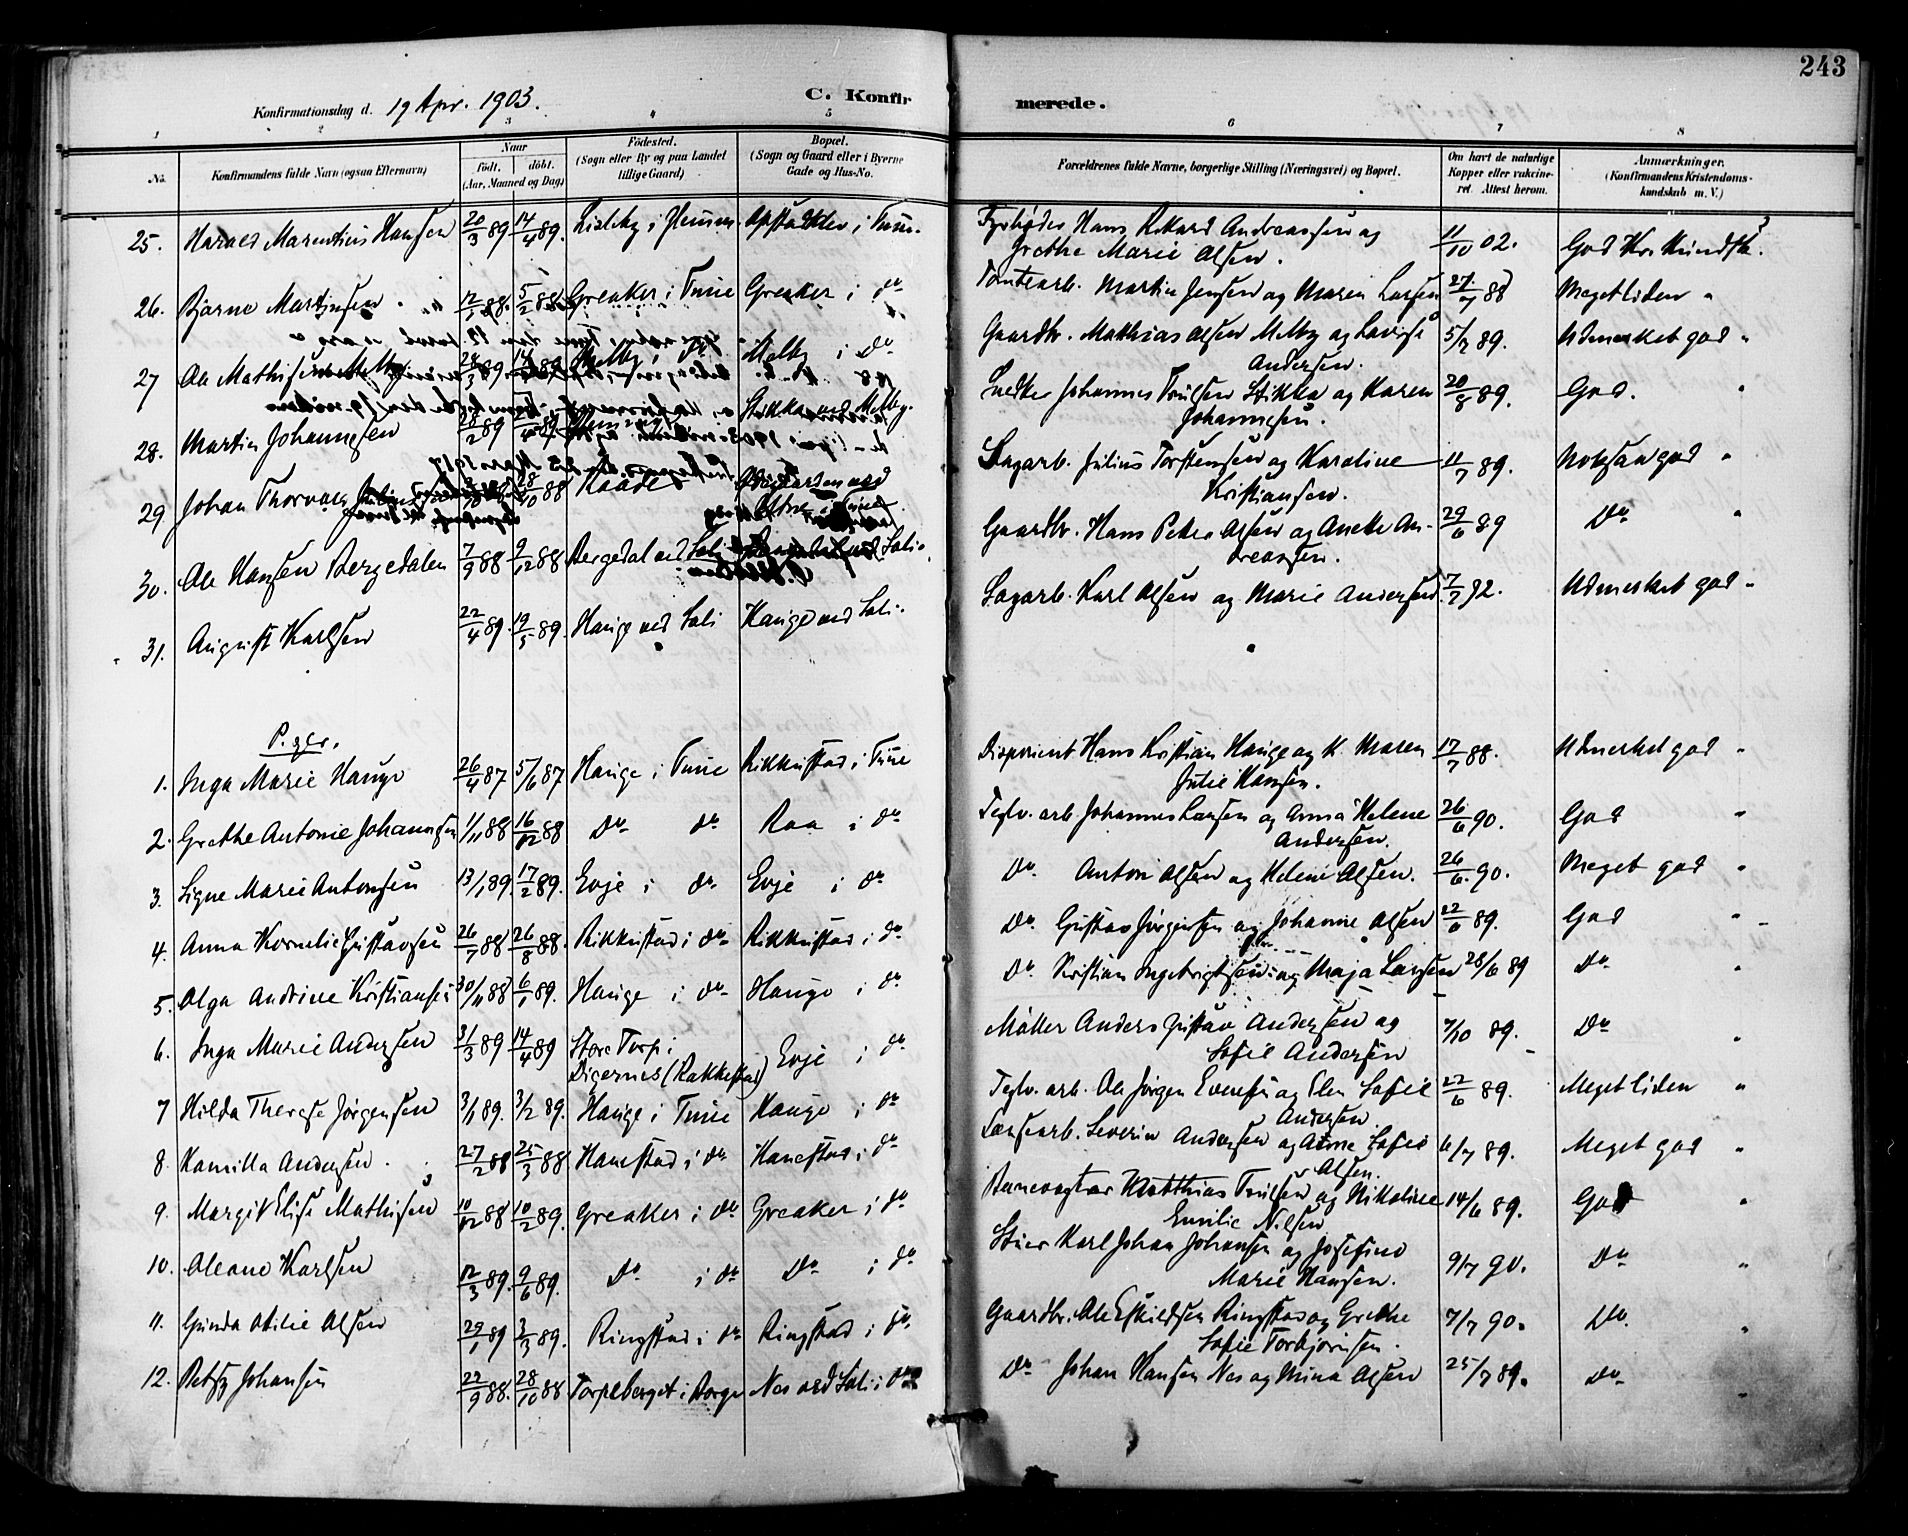 243
Konfirmationsdag d. 19 Apr. 1903.
C. Konfirmerede.
1 2 3 4 5 6 7 8
No.
Konfirmandens fulde Navn (ogsaa Efternavn)
Naar
födt. döbt.
(Aar, Maaned og Dag)
Födested.
(Sogn eller By og paa Landet
tillige Gaard)
Bopæl.
(Sogn og Gaard eller i Byerne
Gade og Hus-No.
Forældrenes fulde Navne, borgerlige Stilling (Næringsvei) og Bopæl.
Om havt de naturlige
Kopper eller vakcine-
ret. Attest herom.
Anmærkninger.
(Konfirmandens Kristendoms-
kundskab m. V.)
25. Harald Marentius Hansen 20/3 89 14/4 89. i Tune. Fyrbøder Hans Rikard Andreassen og
Grethe Marie Olsen. 11/10 02. God Kr. Kundsk.
26. Bjarne Martinsen 12/1 88. 5/2 88 Greaker i Tune Greaker i do Tomtearb. Martin Jensen og Maren Larsen 27/7 88 Meget liden "
27 Ole Mathisen Melby i do Melby i do Gaardbr. Mathias Olsen Melby og Lovise
Andersen. 5/7 89. Udmerket god "
28. Martin Johannesen 2 89 Stikka ved Melby. Snedker Johannes Trulsen Stikka og Karen
Johannesen. 20/8 89. God. "
29 Johan Thorvald 88 Raade Sagarb. Julius Torstensen og Karoline
Kristiansen. 11/7 89. Noksaa god "
30. Ole Hansen Bergedalen 7/9 88 9/12 88 Bergedal ved Soli Gaardbr. Hans Peter Olsen og Anette An-
dreassen. 29/6 89 Do "
31. August Karlsen 22/4 89. 19/5 89. Hauge ved Soli Hauge ved Soli. Sagarb. Karl Olsen og Marie Andersen. 7/7 92. Udmerket god "
Piger.
1. Inga Marie Hauge 26/4 87 5/6 87 Hauge i Tune Rikkustad i Tune Disponent Hans Kristian Hauge og K. Maren
Julie Hansen. 17/7 88. Udmerket god "
2. Grethe Antonie Johannesen 11/11 88 16/12 88 Do do Raa i do Teglv. arb. Johannes Larsen og Anna Helene
Andersen. 26/6 90. God "
3. Signe Marie Antonsen 13/1 89. 17/2 89. Evje i do Evje i do Do Anton Olsen og Helene Olsen. 26/6 90. Meget god "
4. Anna Kornelie Gustavsen 26/7 88 26/8 88. Rikkustad i do Rikkustad i do Do Gustav Jørgensen og Johanne Olsen 22/6 89. God "
5. Olga Andrine Kristiansen 30/11 88 6/1 89. Hauge i do Hauge i do Do Kristian Ingebrigtsen og Maja Larsen 28/6 89 Do "
6. Inga Marie Andersen 31/3 89 14/4 89 Store Torp i
Digernes (Rakkestad) Evje i do Møller Anders Gustav Andersen og
Sofie Andersen 7/10 89. Do "
7 Hilda Therese Jørgensen 3/1 89. 3/2 89. Hauge i Tune Hauge i do Teglv. arb. Ole Jørgen Evensen og Elen Sofie
Andersen 22/6 89. Meget liden "
8. Kamilla Andersen. 27/2 88 25/3 88 Hanestad i do Hanestad i do Severin Andersen og Anne Sofie
Olsen. 6/7 89. Meget god "
9. Margit Elise Mathisen 10/12 88 10/2 89. Greaker i do Greaker i do Banevogter Matthias Trulsen og Nikoline
Emilie Nilsen 14/6 89. God "
10. Oleane Karlsen 12/3 89. 9/6 89. Do i do Do i do Stuer Karl Johan Johansen og Josefine
Marie Hansen. 9/7 90. Do "
11. Gunda Otilie Olsen 29/1 89 3/3 89. Ringstad i do Ringstad i do Gaardbr. Ole Eskildsen Ringstad og Grethe
Sofie Torbjørnsen. 7/7 90. Do. "
12. Betsy Johansen 22/9 88. 28/10 88 Torpeberget i Borge Nes ved Soli i do Do Johan Hansen Nes og Mina Olsen 25/7 89. Do "